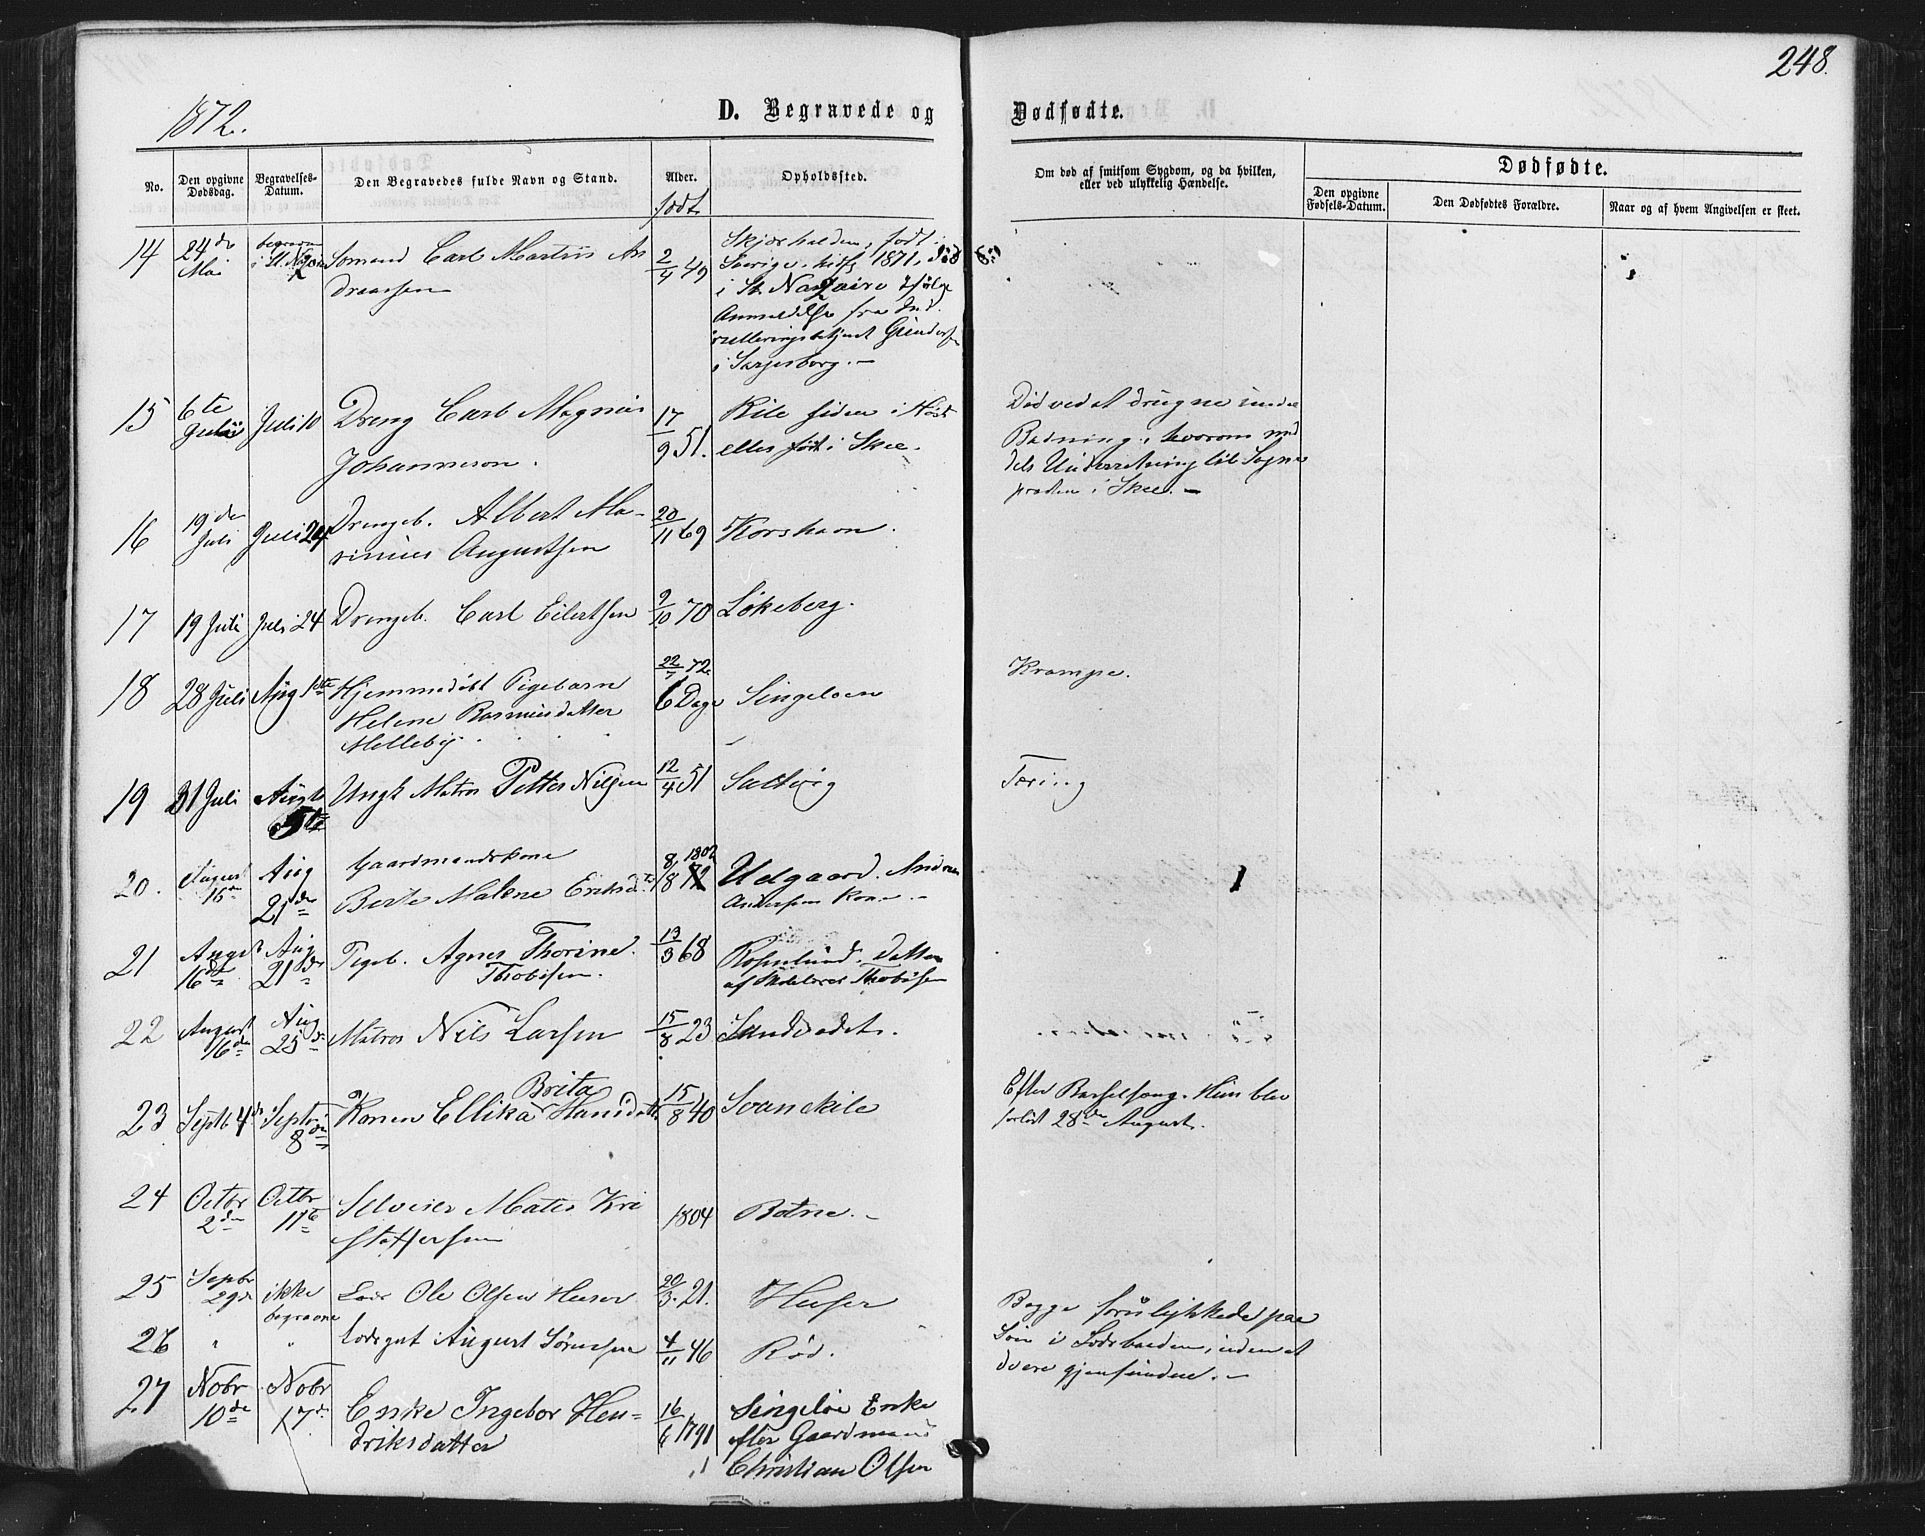 248.
1872.
D. Begravede og Dødfødte.
No.
Den opgivne Dødsdag.
Begravelses-Datum.
Den Begravedes fulde Navn og Stand.
Alder.
født
Opholdssted.
Om død af smitsom Sygdom, og da hvilken,
eller ved ulykkelig Hændelse.
Dødfødte.
Den opgivne Fødsels-Datum.
Den Dødfødtes Forældre.
Naar og af hvem Angivelsen er skeet.
14 24de Mai begraven i St. Sømand Carl Martin An 2/4 49 Skjærhalden, født i
draassen Sverige, 1871, død
i St. Nazaire ifølge
Anmeldelse fra
i Sarpsborg.
15 6te Juli Juli 10 Dreng Carl Magnus 17/9 51. Kile siden i
Johanneson. eller født i Skee.
Død ved at drugne under
Badning, hvorom med
dels Underretning til Sogne
præsten i Skee.
16 19de Juli Juli 24 Drengeb. Albert Ma- 20/11 69 Korshavn.
rinius Augustsen
17 19 Juli Juli 24 Drengeb. Carl Eilertsen 9/10 70 Løkeberg.
18 28 Juli Aug 1ste Hjemmedøbt Pigebarn 22/7 72 6 Dage Singeløen Krampe.
Helene Rasmusdatter
Mellebÿ
19 31 Juli Augt 5te Ungk. Matros Petter Nilsen 12/4 51 Saltvig Tæring
20. August 16de Aug 21de Gaardmandskone 8/8 1802 Udgaard. Andreas
Berte Malene Eriksdt. Andersens Kone
21 Augst 16de Aug 21de Pigeb. Agnes Thorine 13/3 68 Rosselund. Datter
Thobisen. af Skolelærer Thobisen
22 August 16de Aug 25de Matros Nils Larsen 15/8 23 Sandvadet.
23 Septb 4de Septr 8de Konen Ellika Brita Hansdatt 15/8 40 Svanekile
Efter Barselseng. Hun blev
forløst 28de August.
24 Octbr 2den Octbr 11te Selveier Mates Kri 1804 Botne.
stoffersen
25 Septbr 29de ikke begravne Lods Ole Olsen Huser 20/3. 21. Huser
26 " " Lodsgut August Sørensen 4/11 46 Rød.
Begge forulykkede paa
Søen i Lodsbaaden, uden at
være gjenfundne.
27 Nobr 10de Nobr 17de Enke Ingebor Hen- 16/6 1791 Singeløe Enke
driksdatter efter Gaardmand
Christian Olsen